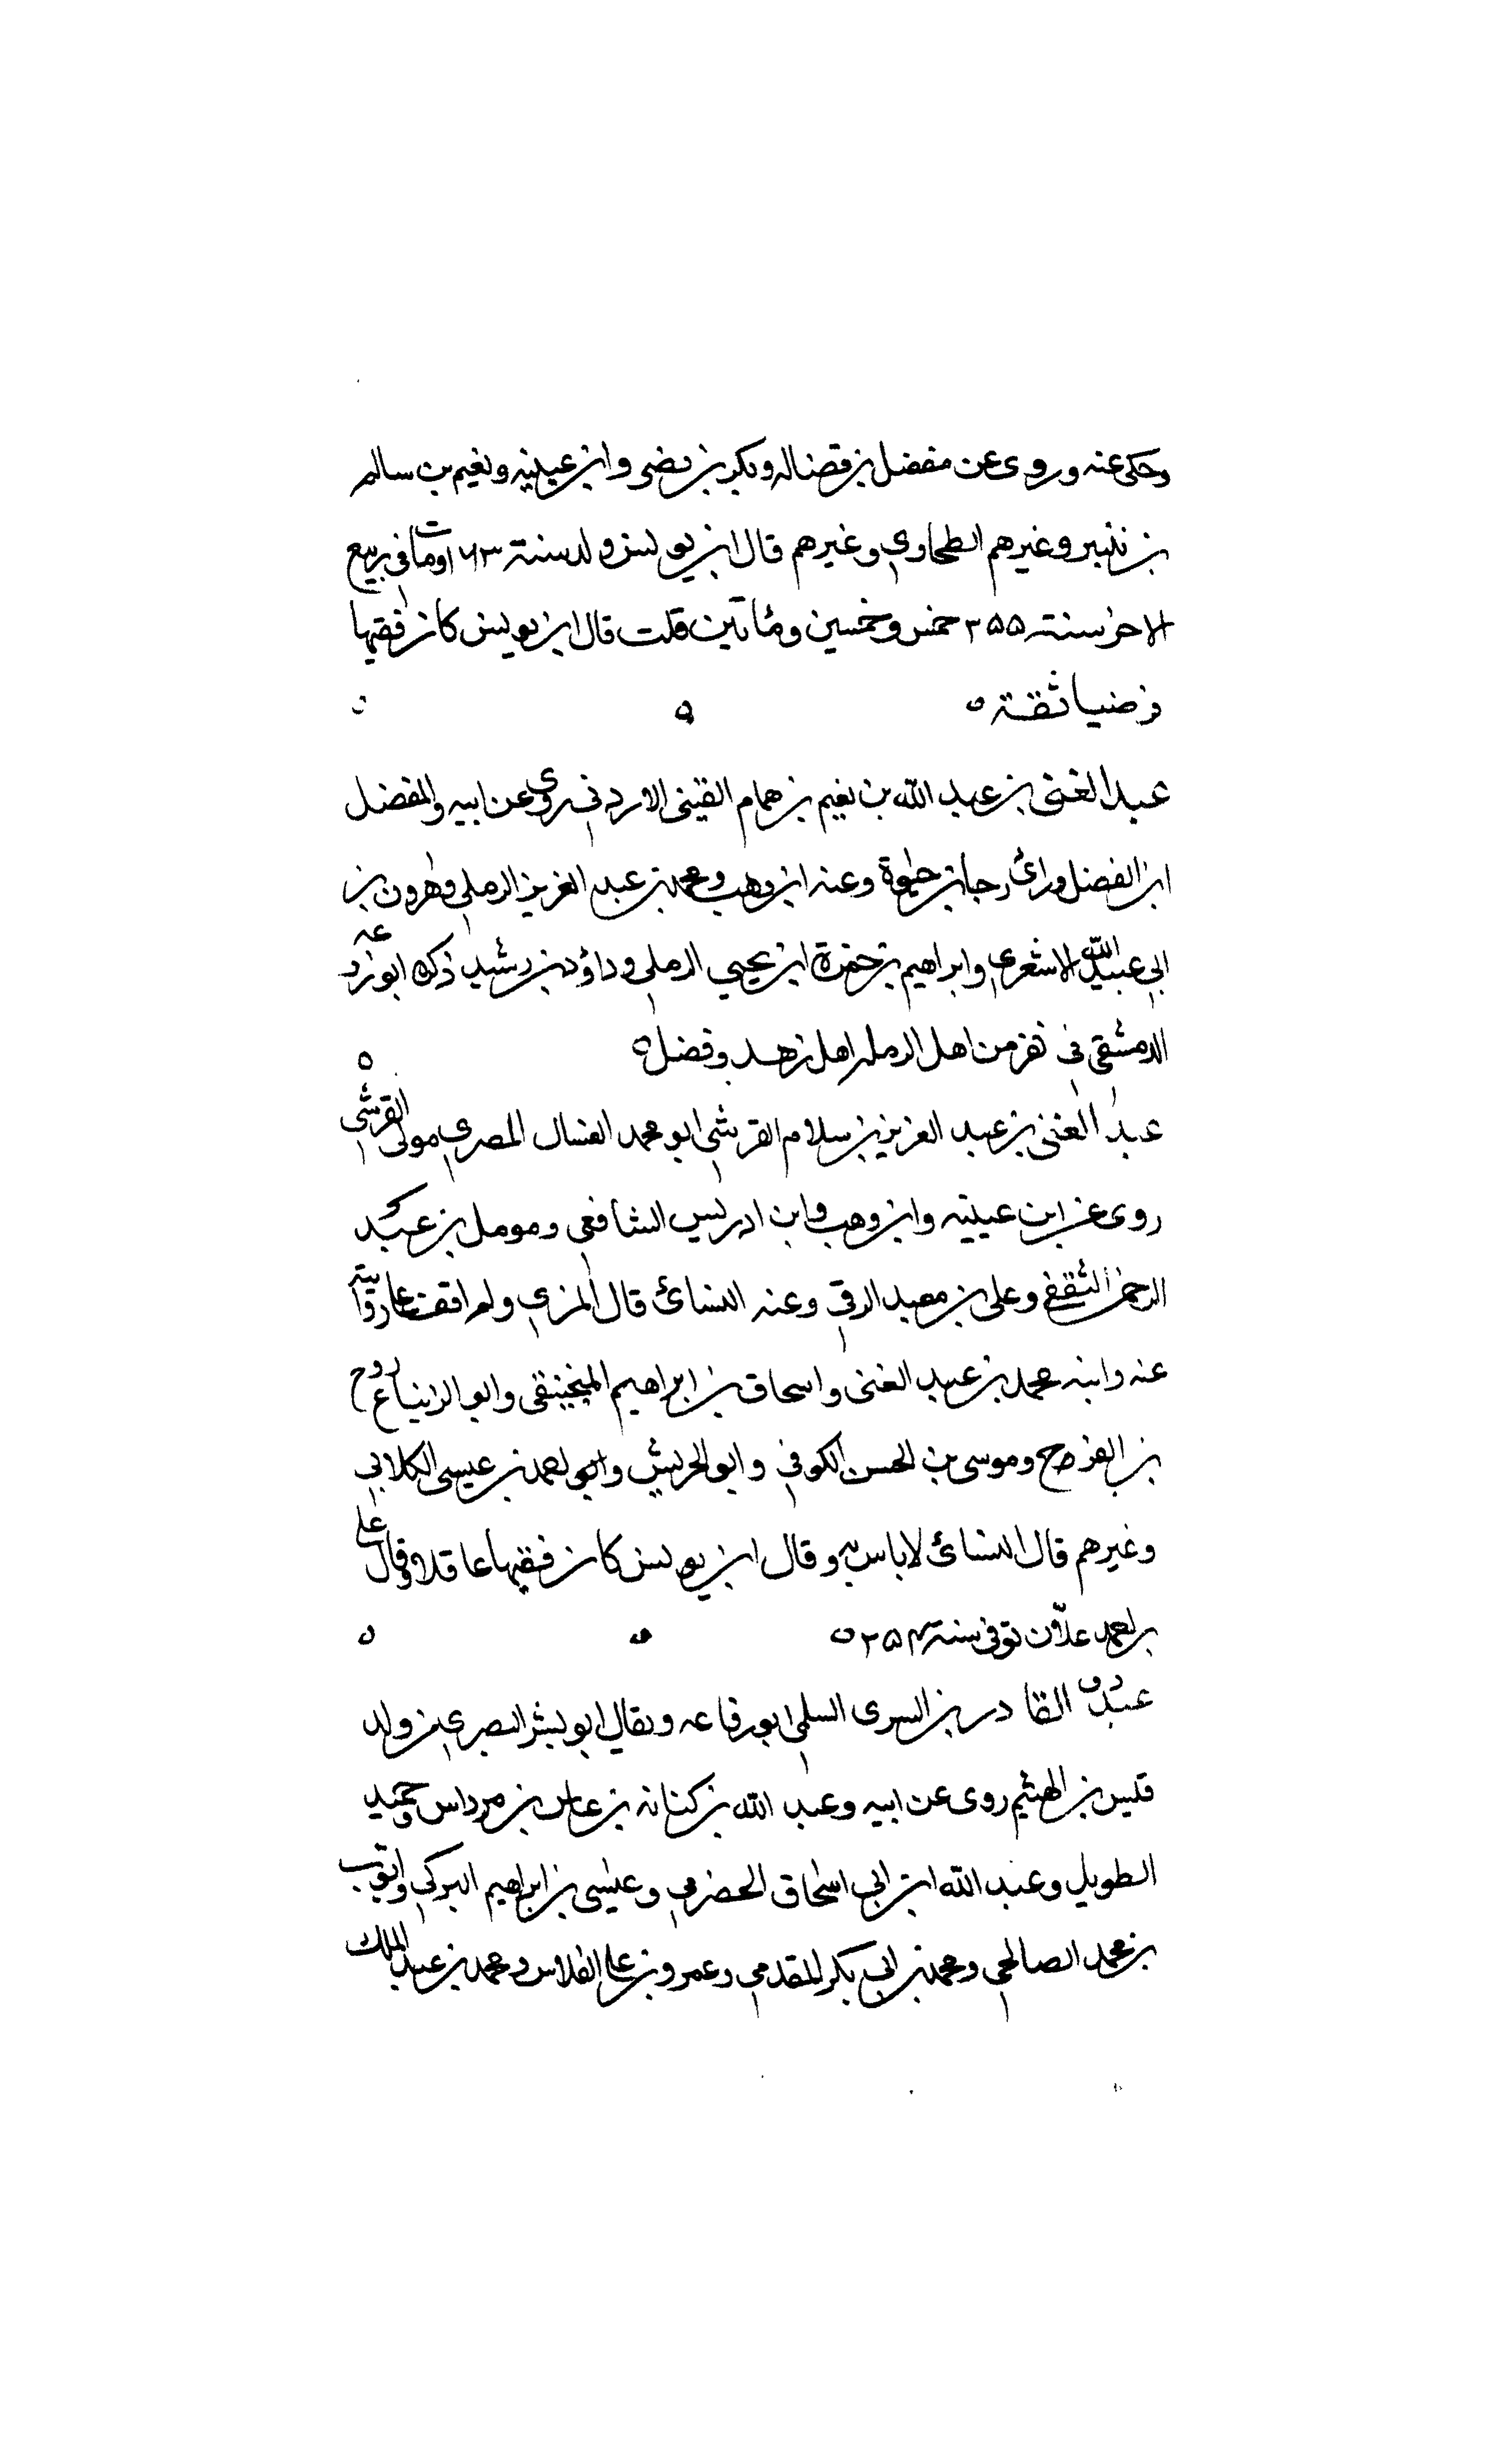 وحكى عنه وروى عن مفضل بن فضاله وبكر بن مضر وابن عيينه ونعيم بن سالم
بن قنبر وغيرهم الطحاوي وغيرهم قال ابن يونس ولد سنة ١٦٣ ومات في ربيع
الاخر سنة ٢٥٥ خمس وخمسين ومأتين قلت قال ابن يونس كان فقيها
فرضيا ثقة
عبد الغني بن عبد الله بن نعيم بن همام القيني الاردني روى عن ابيه والمفضل
ابن الفضل ورائ رجاء بن حيوة وعنه ابن وهب ومحمد بن عبد العزيز الرملي وهرون بن
ابي عبيد الله الاشعري وابراهيم بن حمزة ابن يحيى الرملي وداؤد بن رشيد ذكره ابو زرعه
الدمشقي في نفر من اهل الرمله اهل زهد وفضل
عبد الغني بن عبد العزيز بن سلام القرشي ابو محمد العسال المصري مولى القرشي
روى عن ابن عيينه وابن وهب وابن ادريس الشافعي ومومل بن عبد
الرحمن الثقفي وعلي بن معبد الرقي وعنه النسائ قال المزي ولم اقف على روايته
عنه وابنه محمد بن عبد الغني واسحاق بن ابراهيم المنجنيقي وابو الزنباع روح
بن الفرج وموسى بن الحسن الكوفي وابو الحريش وابو احمد بن عيسى الكلابي
وغيرهم قال النسائ لا باس به وقال ابن يونس كان فقيها عاقلا وقال على
بن احمد علان توفي سنة ٢٥٤
عبد القادر بن السري السلمي ابو رفاعه ويقال ابو بشر البصري من ولد
قيس بن الهثيم روى عن ابيه وعبد الله بن كنانه بن عباس بن مرداس وحميد
الطويل وعبد الله ابن ابي اسحاق الحضرمي وعيسى بن ابراهيم البركي وايوب
بن محمد الصالحي ومحمد بن ابي بكر المقدمي وعمرو بن علي الفلاس ومحمد بن عبد الملك